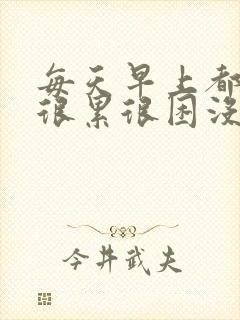 每天早上都
很累很困没
今井武夫